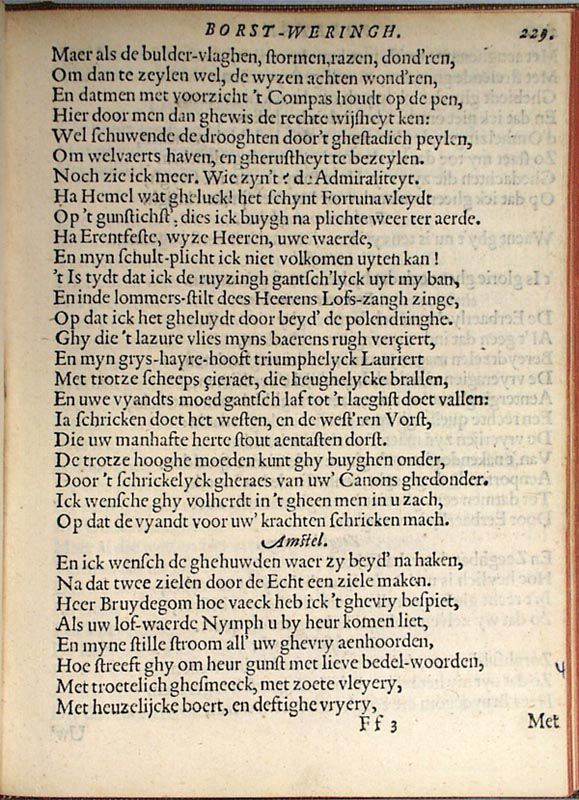 BORST-WERINGH. 229.
Maer als de bulder-vlaghen, stormen, razen, dond'ren,
Om dan te zeylen wel, de wyzen achten wond'ren,
En datmen met voorzicht 't Compas houdt op de pen,
Hier door men dan ghewis de rechte wijsheyt ken:
Wel schuwende de drooghten door't ghestadich peylen,
Om welvaerts haven, en gherustheyt te bezeylen.
Noch zie ick meer. Wie zyn't? d: Admiraliteyt.
Ha Hemel wat gheluck! het schynt Fortuna vleydt
Op 't gunstichst', dies ick buygh na plichte weer ter aerde.
Ha Erentfeste, wyze Heeren, uwe waerde,
En myn schult-plicht ick niet volkomen uyten kan!
't Is tydt dat ick de ruyzingh gantsch'lyck uyt my ban,
En inde lommers-stilt dees Heerens Lofs-zangh zinge,
Op dat ick het gheluydt door beyd' de polen dringhe.
Ghy die 't lazure vlies myns baerens rugh verçiert,
En myn grys-hayre-hooft triumphelyck Lauriert
Met trotze scheeps çieraet, die heughelycke brallen,
En uwe vyandts moed gantsch laf tot 't laeghst doet vallen:
Ia schricken doet het westen, en de west'ren Vorst,
Die uw manhafte herte stout aentasten dorst.
De trotze hooghe moeden kunt ghy buyghen onder,
Door 't schrickelyck gheraes van uw' Canons ghedonder.
Ick wensche ghy volherdt in 't gheen men in u zach,
Op dat de vyandt voor uw' krachten schricken mach.
Amstel.
En ick wensch de ghehuwden waer zy beyd' na haken,
Na dat twee zielen door de Echt een ziele maken.
Heer Bruydegom hoe vaeck heb ick 't ghevry bespiet,
Als uw lof-waerde Nymph u by heur komen liet,
En myne stille stroom all' uw ghevry aenhoorden,
Hoe streeft ghy om heur gunst met lieve bedel-woorden,
Met troetelich ghesmeeck, met zoete vleyery,
Met heuzelijcke boert, en deftighe vryery,
Ff 3 Met